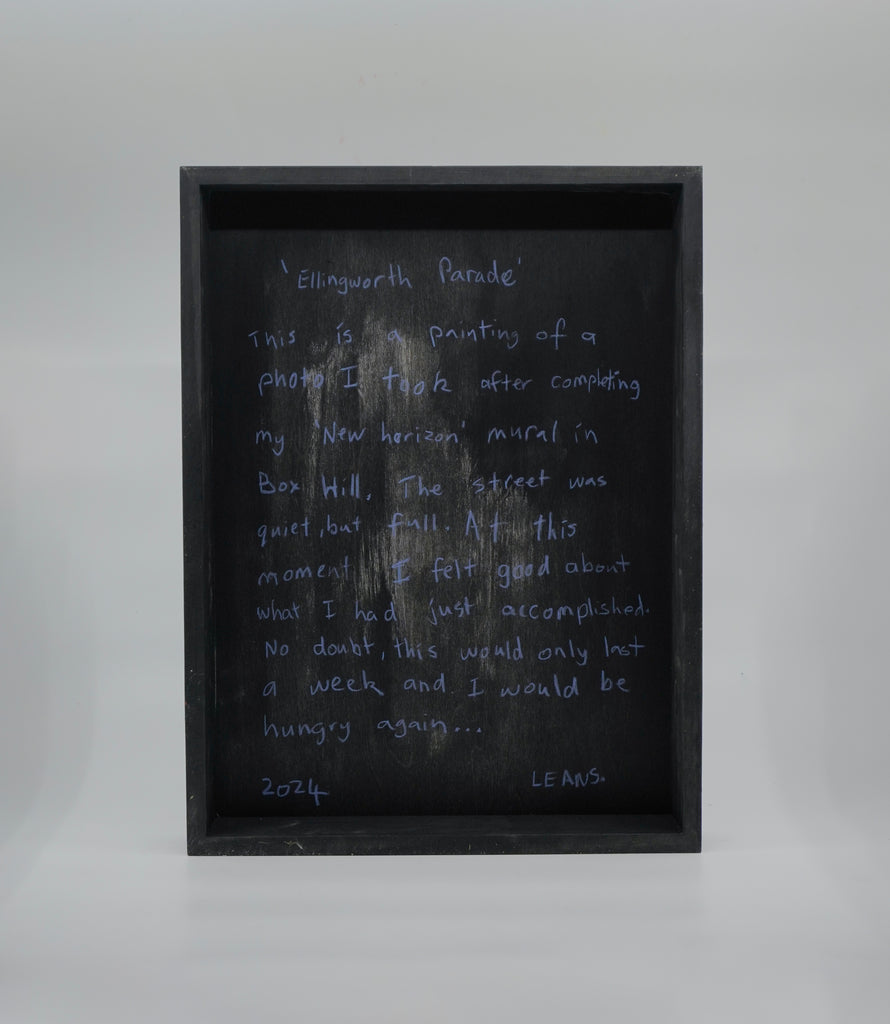 'Ellingworth Parade'
This is a painting of a
photo I took after completing
my 'New horizon' mural in
Box Hill. The street was
quiet, but full. At this
moment I felt good about
what I had just accomplished.
No doubt, this would only last
a week and I would be
hungry again...
2024 LEANS.